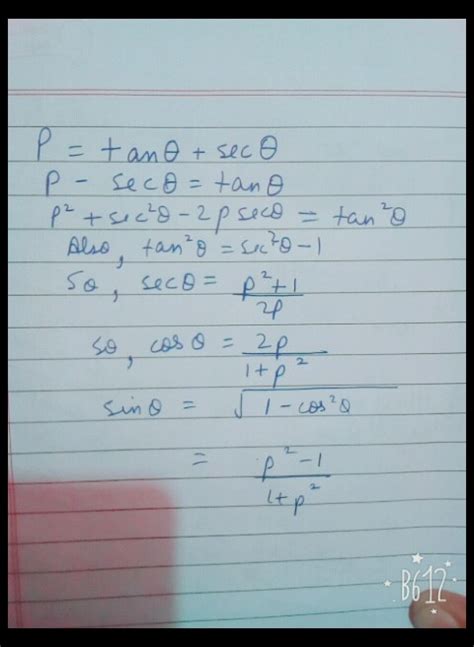 P = tanθ + secθ
P - secθ = tanθ
p² + sec²θ - 2p secθ = tan²θ
Also, tan²θ = sec²θ - 1
So, secθ = p²+1 / 2p
so, cosθ = 2p / 1+p²
sinθ = √1-cos²θ
= p²-1 / 1+p²
B612